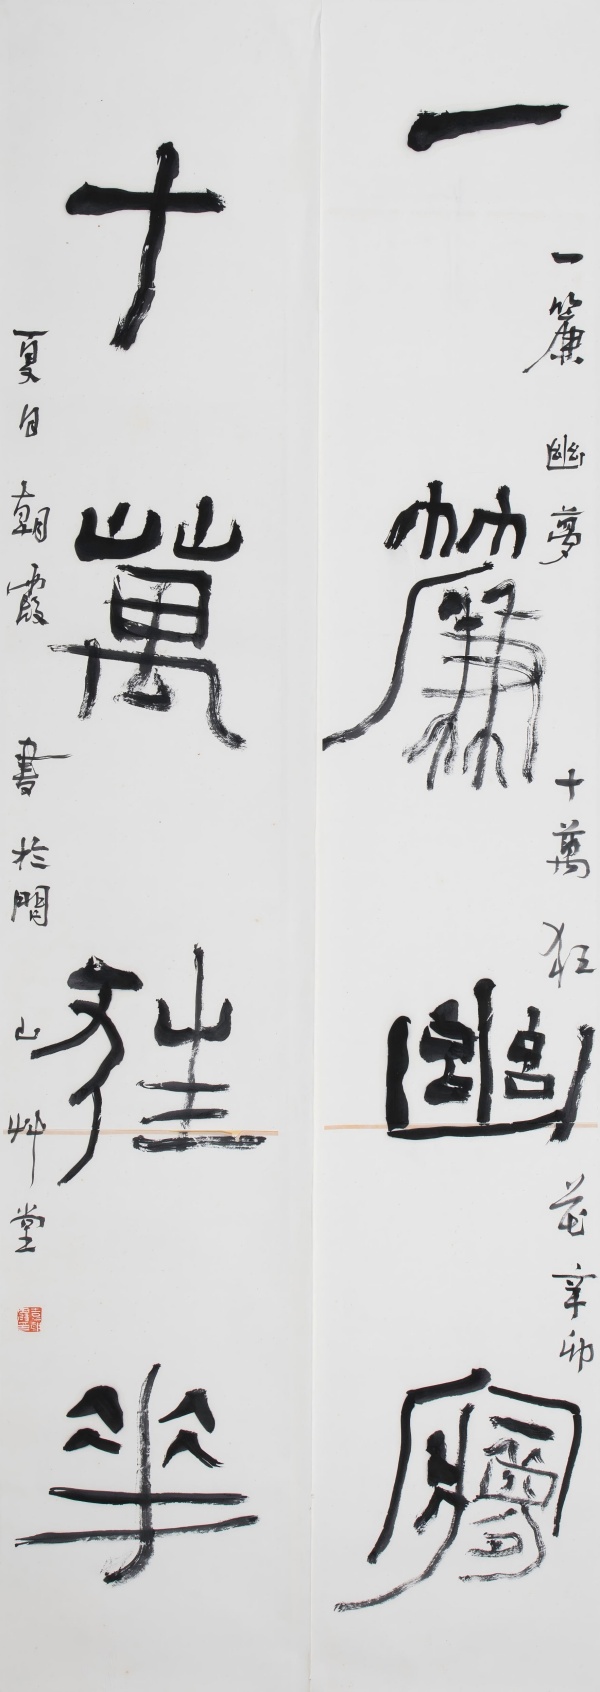 一簾幽夢
十萬狂華
一簾幽夢十萬狂花辛卯
夏日朝霞書於閒山艸堂